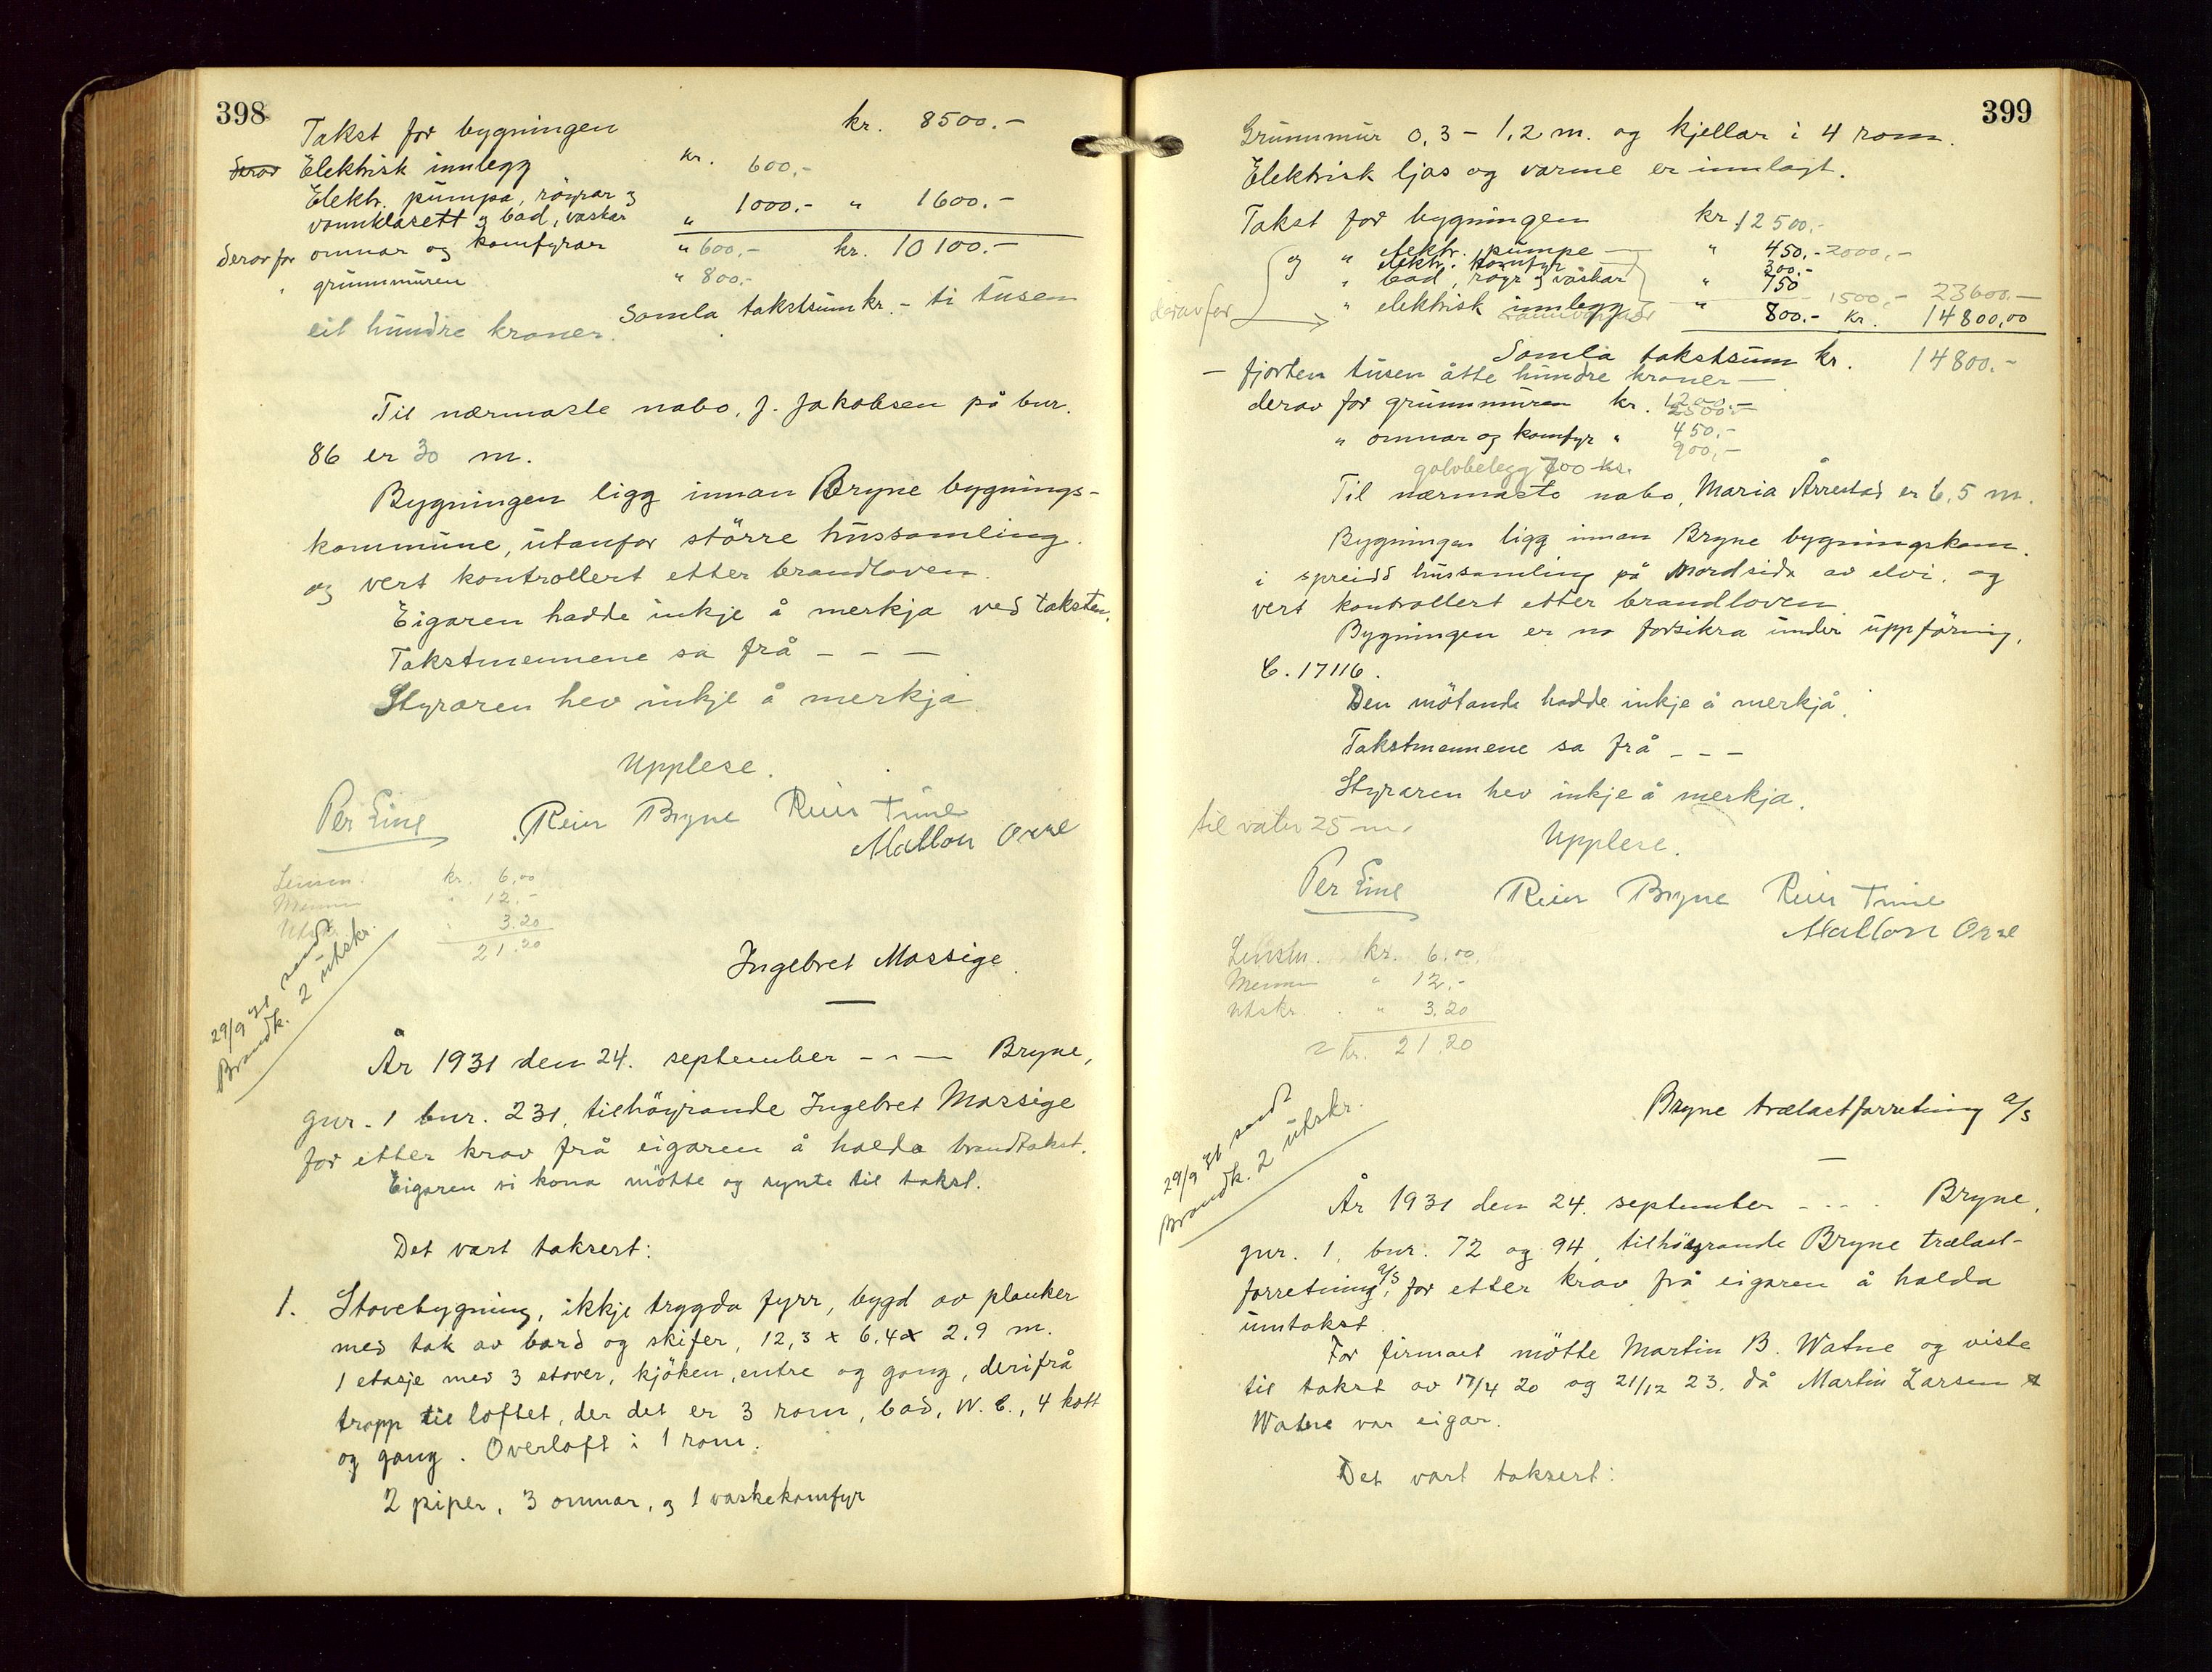 398
Takst for bygningen kr. 8500.-
derav Elektrisk innlegg kr. 600.-
Elektr. pumpa, röyrar og
vannklosett og bad, vaskar " 1000.- " 1600.-
derav for omnar og komfyrar " 600.- kr. 10100.-
" grunnmuren " 800.-
Samla takstsum kr. - ti tusen
eit hundre kroner.
Til nærmaste nabo, J. Jakobsen på bnr.
86 er 30 m.
Bygningen ligg innan Bryne bygnings-
kommune, utanfor större hussamling.
og vert kontrollert etter brandloven.
Eigaren hadde inkje å merkja ved taksten.
Takstmennene sa frå - - -
Styraren hev inkje å merkja.
Upplese.
Per Line Reier Bryne Reier Time
Mallon Orre
Lensm. kr. 6,00
Menn " 12.-
Utskr. " 3.20
21.20
29/9 31 sendt
Brandk. 2 utskr.
Ingebret Mossige.
År 1931 den 24. september - - - Bryne,
gnr. 1 bnr. 231, tilhöyrande Ingebret Mossige
for etter krav frå eigaren å halda brandtakst.
Eigaren si kona mötte og synte til takst.
Det vart taksert:
1. Stovebygning, ikkje trygda fyrr, bygd av planker
med tak av bord og skifer, 12,3 x 6,4 x 2,9 m.
1 etasje med 3 stover, kjöken, entre og gang, derifrå
tropp til loftet, der det er 3 rom, bad, W.C., 4 kott
og gang. Overloft i 1 rom.
2 piper, 3 omnar, og 1 vaskekomfyr
399
Grunnmur 0,3 - 1,2 m. og kjellar i 4 rom.
Elektrisk ljos og varme er innlagt.
Takst for bygningen kr. 12500.-
og " elektr. pumpe " 450.- 2000.-
" elektr. komfyr 300.-
" bad, röyr og vaskar " 750 1500.- 23600.-
derav for " elektrisk innlegg " 800.- kr. 14800,00
Samla takstsum kr. 14800.-
- fjorten tusen åtte hundre kroner -
derav for grunnmuren kr. 1200.-
2500.-
" omnar og komfyr " 450.-
900.-
golvbelegg 700 kr.
Til nærmaste nabo, Maria Årrestad er 6,5 m.
Bygningen ligg innan Bryne bygningskom.
i spreidd hussamling på Nordsida av elvi, og
vert kontrollert etter brandloven.
Bygningen er no forsikra under uppföring,
C. 17116.
Den mötande hadde inkje å merkja.
Takstmennene sa frå - - -
Styraren hev inkje å merkja.
til vatn 25 m.
Upplese.
Per Line Reier Bryne Reier Time
Mallon Orre
Lensm. kr. 6.00
Menn " 12.-
Utskr. " 3.20
kr. 21.20
29/9 31 sendt
Brandk. 2 utskr.
Bryne trælastforretning a/s
År 1931 den 24. september - - - Bryne,
gnr. 1, bnr. 72 og 94, tilhöyrande Bryne trælast-
forretning a/s, for etter krav frå eigaren å halda
umtakst.
For firmaet mötte Martin B. Watne og viste
til takst av 17/4 20 og 21/12 23. då Martin Larsen
Watne var eigar.
Det vart taksert: